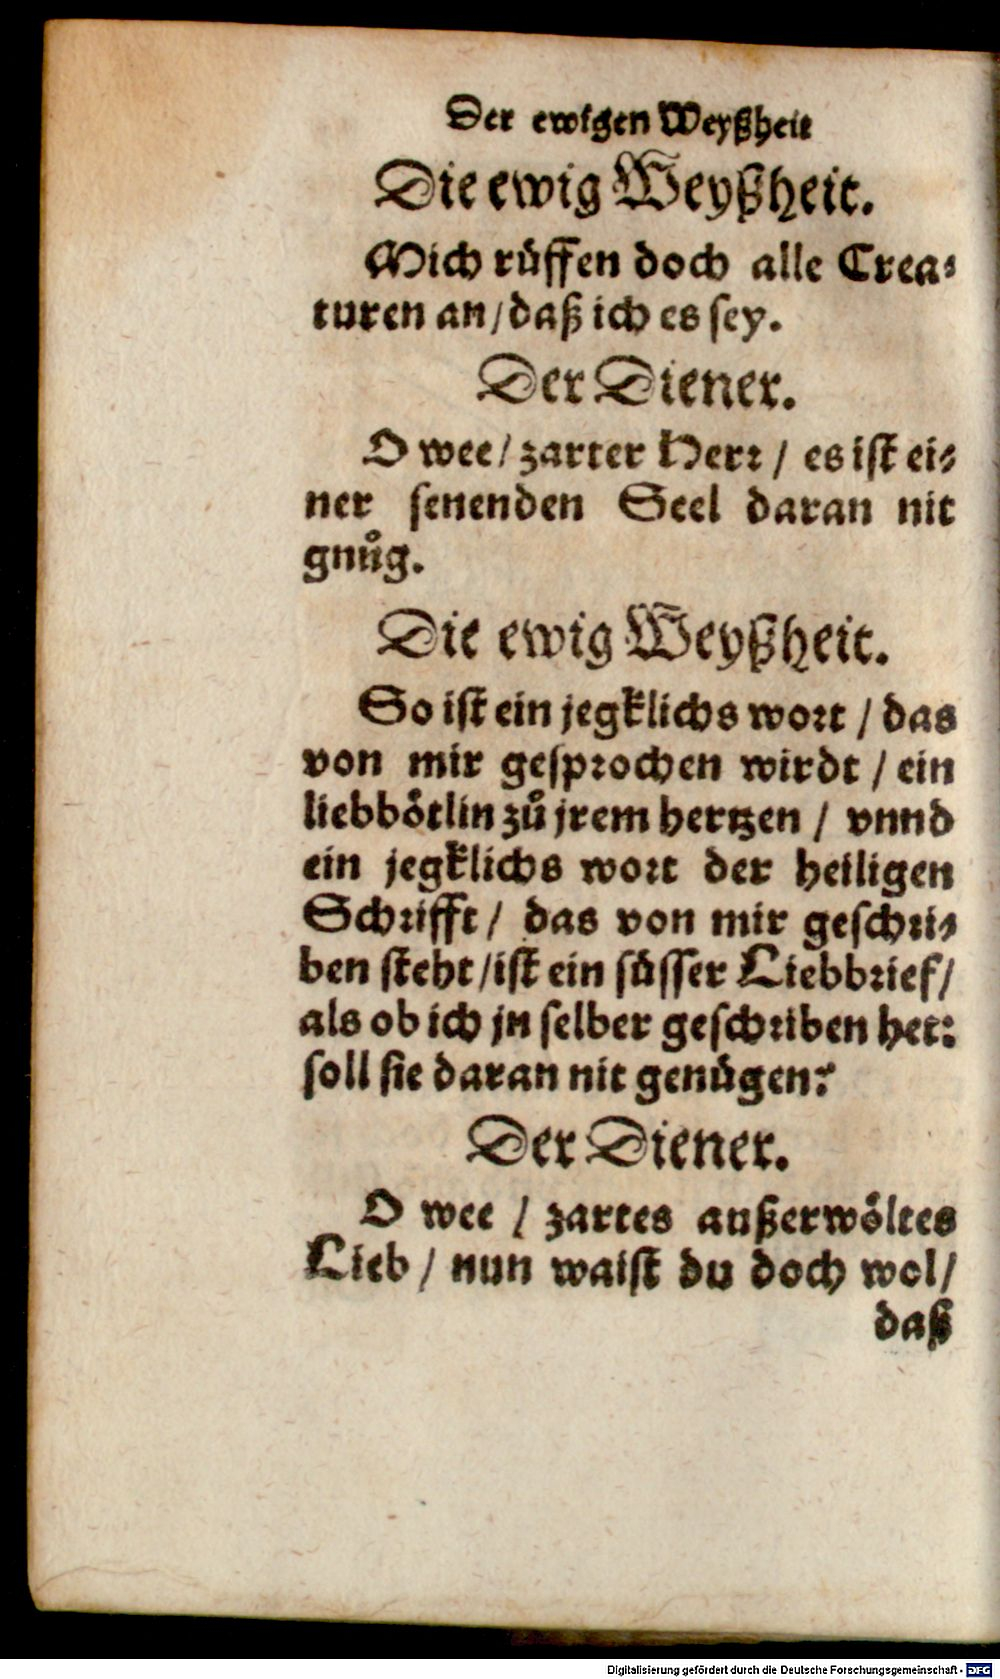 Der ewigen Weyßheit
Die ewig Weyßheit.
Mich rüffen doch alle Crea⸗
turen an/ daß ich es sey.
Der Diener.
O wee/ zarter Herr / es ist ei⸗
ner senenden Seel daran nit
gnůg.
Die ewig Weyßheit.
So ist ein jegklichs wort / das
von mir gesprochen wirdt / ein
liebbötlin zů jrem hertzen / vnnd
ein jegklichs wort der heiligen
Schrifft / das von mir geschri⸗
ben steht /ist ein süsser Liebbrief/
als ob ich jn selber geschriben het:
soll sie daran nit genügen?
Der Diener.
O wee / zartes außerwöltes
Lieb / nun waist du doch wol/
daß
Digitalisierung gefördert durch die Deutsche Forschungsgemeinschaft - DFG